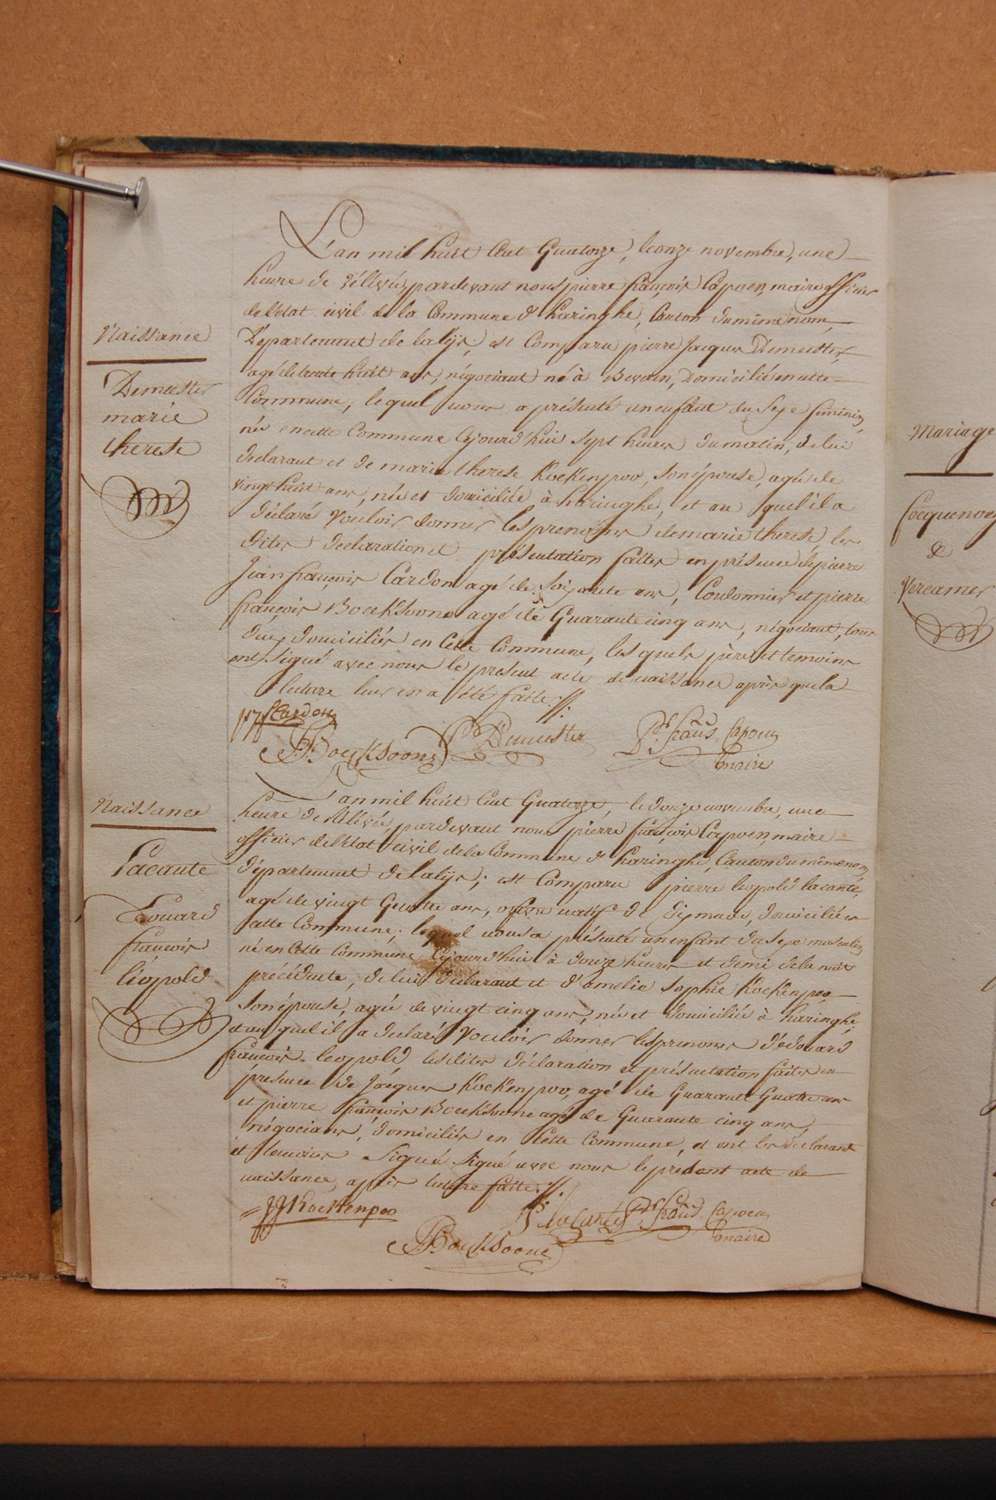 L'an mil huit Cent Quatorze, le onze novembre, une
heure de rélévée, pardevant nous pierre françois Capoen, maire officier
de l'état civil de la Commune d'haringhe, Canton du même nom,
Département de la lÿs, est Comparu pierre Jacques Demeester
agé de trente huit ans, négociant né à Beveren, Domicilié en cette
Commune, lequel nous a présenté un enfant du sexe feminin,
née en cette Commune cejourd'hui sept heures du matin, de lui
déclarant et de marie therese Kockenpoo, son épouse, agée de
vingt huit ans, née et domiciliée à haringhe, et au quel il a
déclaré vouloir donner les prenoms de marie therese les
dites déclaration et présentation faites en présence de pierre
Jean françois Cardon agé de soixante ans, Cordonnier et pierre
françois Boecksoone agé de Quarante cinq ans, négociant, tous
deux domiciliés en Cette Commune, les quels père et temoins
ont signé avec nous le present acte de naissance après que la
lecture leur en a été faite ./.
Naissance
Demeester
marie
therese
pjf Cardon
P. Boecksoone
P Demeester
Pre. frans. Capoen
maire
L'an mil huit Cent Quatorze, le douze novembre, une
heure de rélévée, pardevant nous pierre françois Capoen, maire
officier de l'état civil de la Commune d'haringhe, Canton du même nom,
département de la lÿs; est Comparu pierre léopold lacante,
agé de vingt Quatre ans, natif de dixmude, domicilié en
cette Commune; lequel nous a présenté un enfant du sexe masculin
né en Cette Commune Cejourd'hui à douze heures et demi de la nuit
précédente, de lui déclarant et d'amelie Sophie Kockenpoo
son épouse, agée de vingt cinq ans, née et domiciliée à haringhe
et au quel il a déclaré vouloir donner les prenoms d'édouard
françois léopold les dites déclaration et présentation faites en
présence de Jacques Kockenpoo, agé de Quarante Quatre ans
et pierre françois Boecksoone agé de Quarante cinq ans,
négocians, domiciliés en Cette Commune, et ont les declarant
et temoins signé signé avec nous le présent acte de
naissance, après lecture faite ./.
Naissance
Lacante
Edouard
françois
léopold
JJ Kockenpoo
P. Lacante
Pre. frans. Capoen
maire
P. Boecksoone
Mariage
&
Vercamer